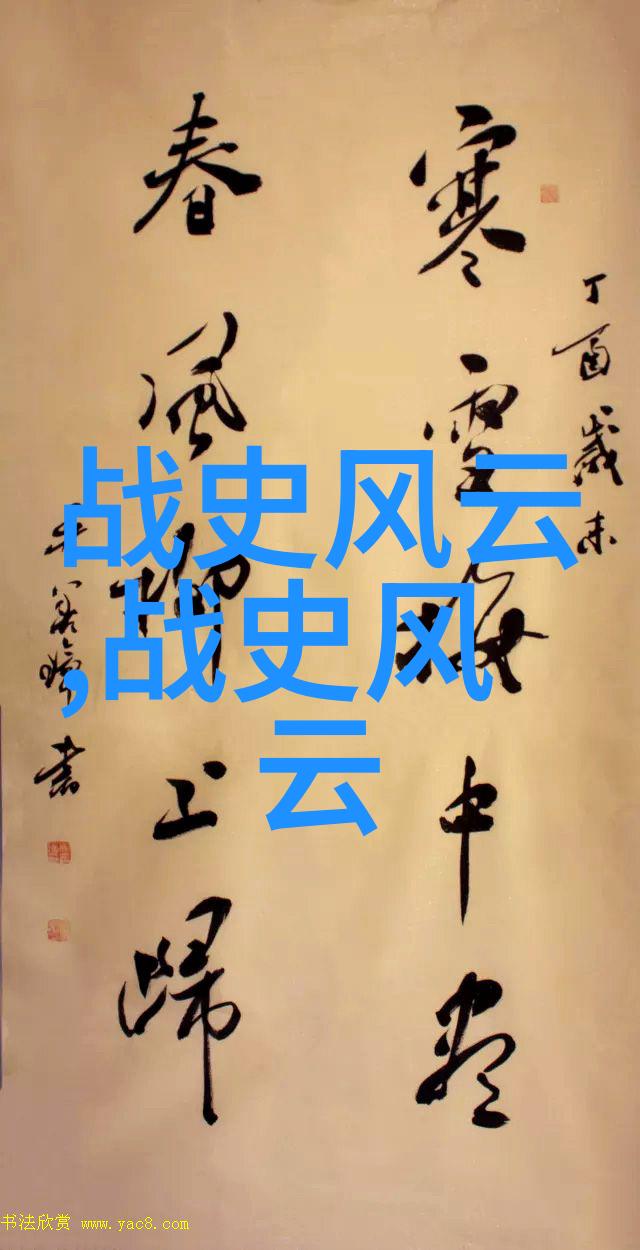 丁酉歲末
寒雪梅中盡
春風柳上歸
書
战史风云
,战史风
云
书法欣赏 www.yac8.com